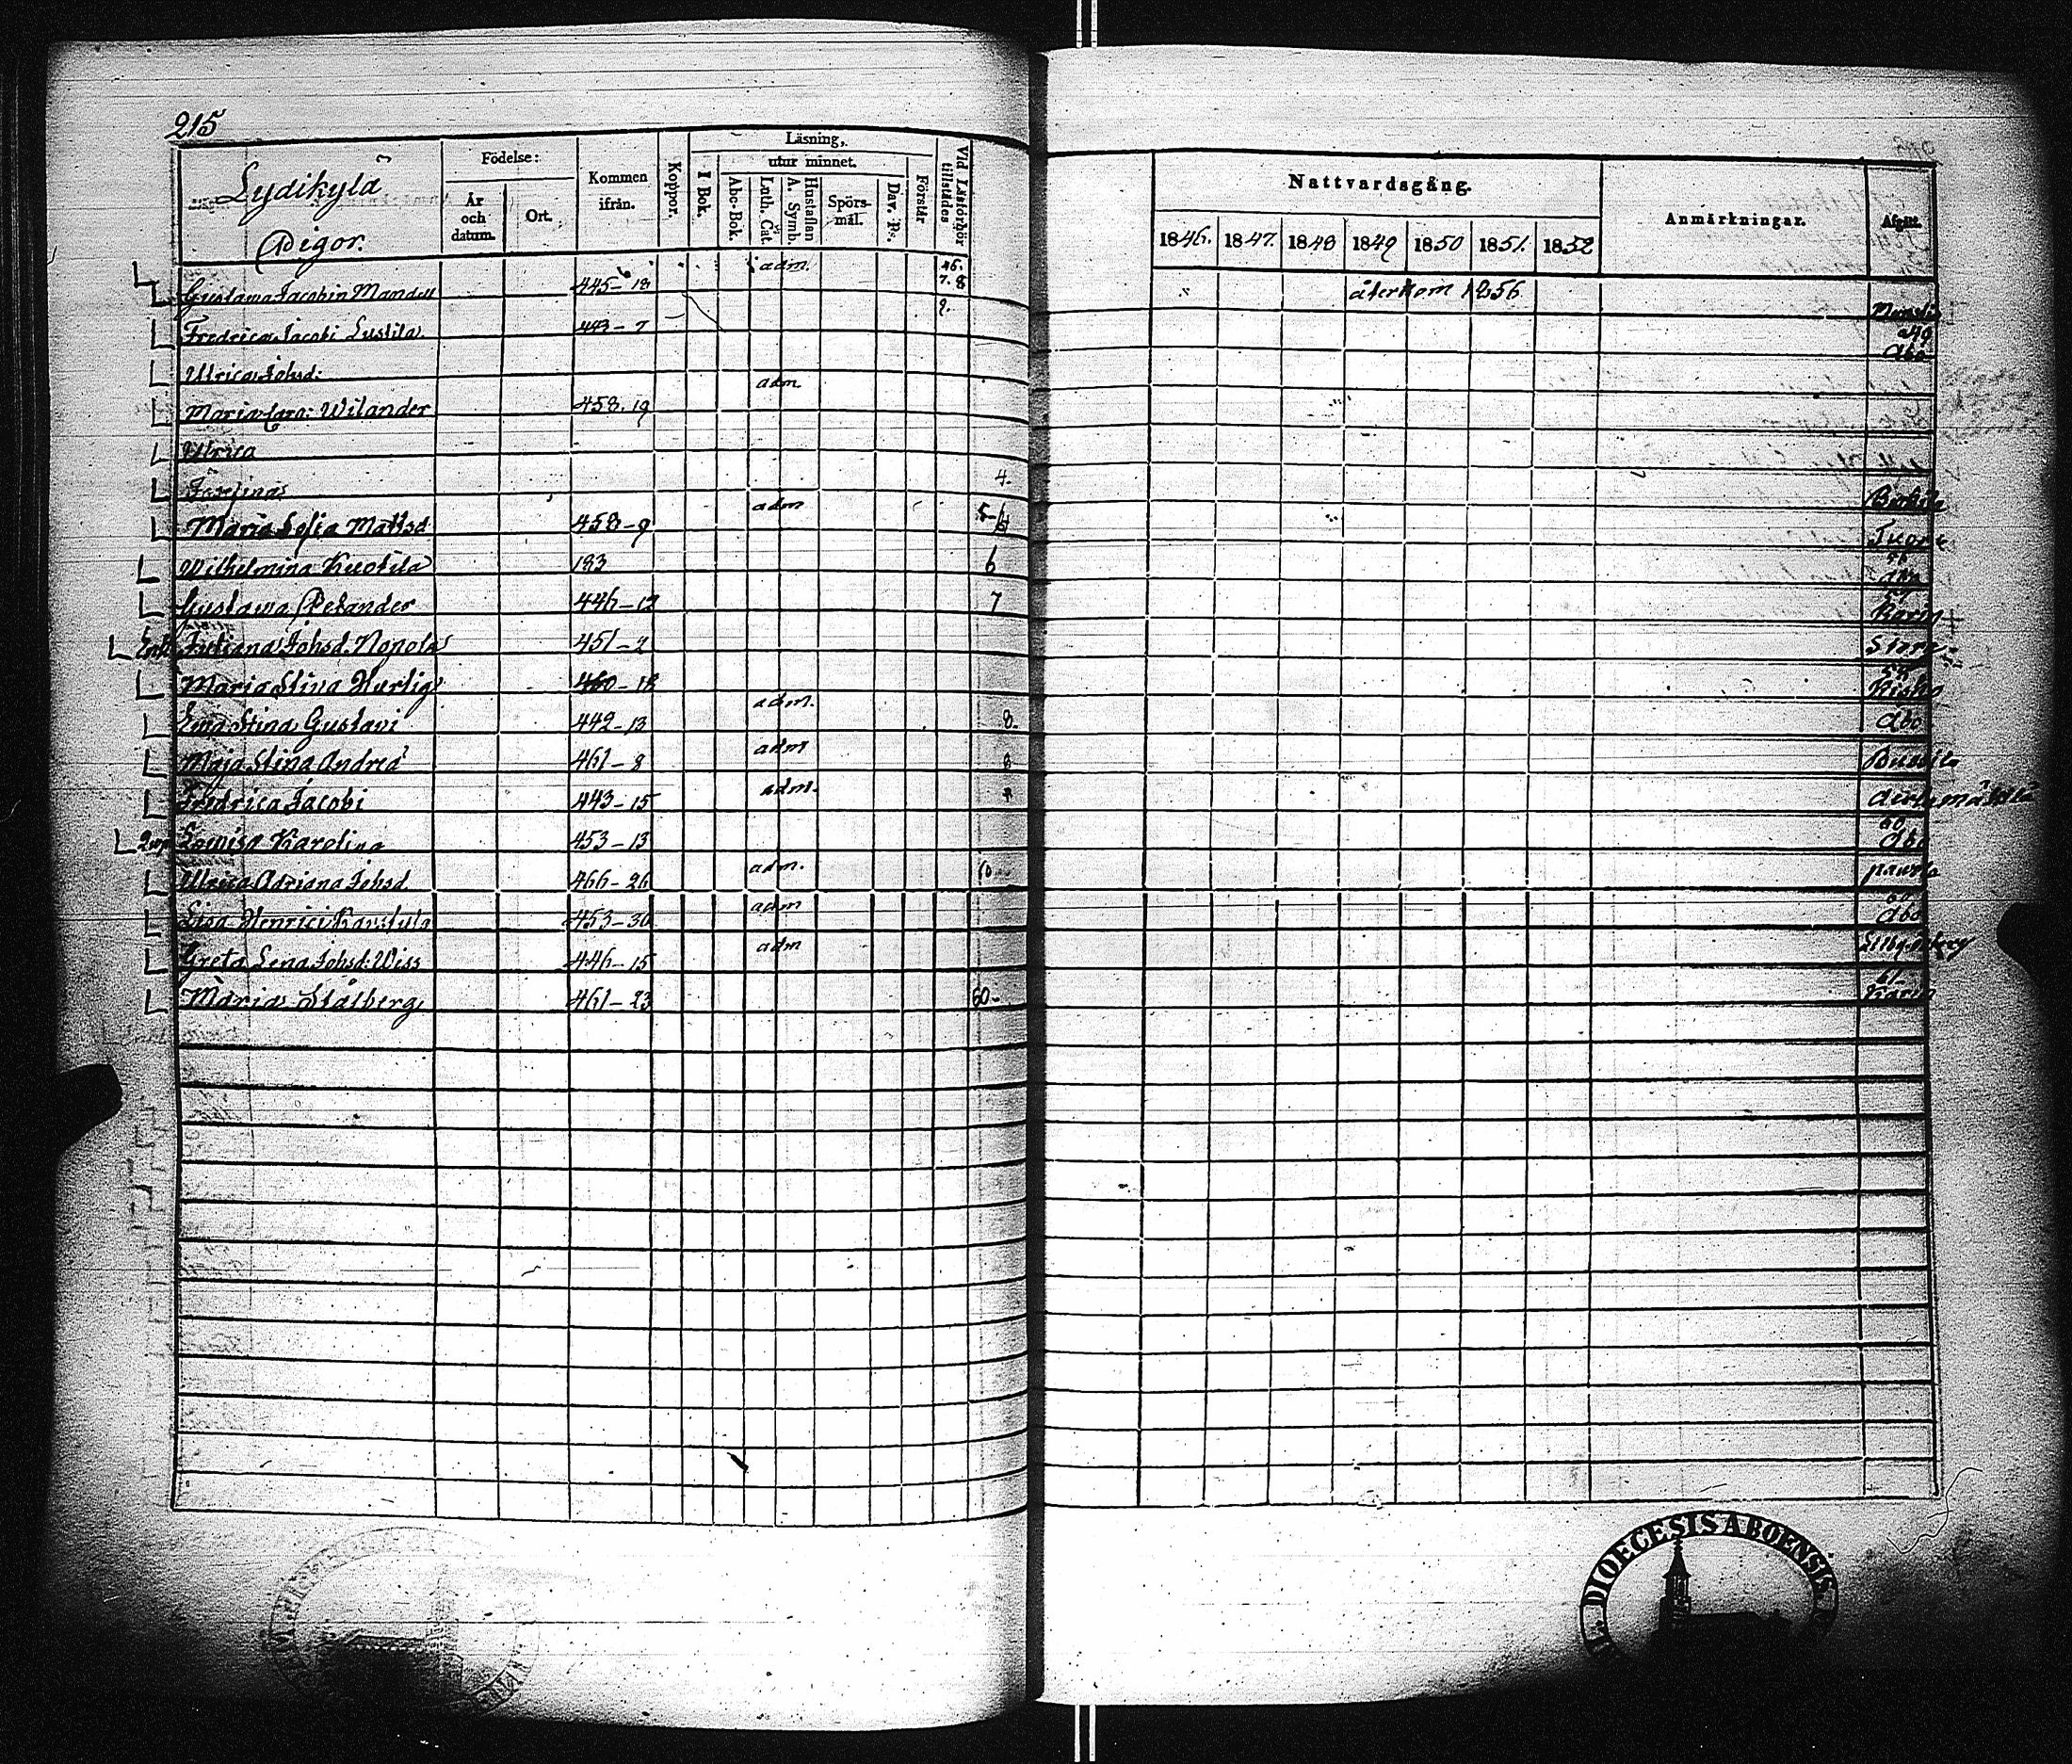 215
Lydikylä
Pigor.
Födelse:
År och datum.
Ort.
Kommen ifrån.
Koppor.
Läsning,
utur minnet.
I Bok.
Abc-Bok.
Luth. Cat.
Hustaflan A. Symb.
Spörsmål.
Dav. Ps.
Förstår
Vid Läsförhör tillstädes
Nattvardsgång.
1846. 1847. 1848 1849 1850 1851. 1852
Anmärkningar.
Afgått.
Gustawa Jacobin Mandell 445-18 adm. 46. 7. 8 återkom 1856
Fredrica Jacobi Lustila 443-7 49 Åbo
Ulrica Johsd:
Maria Caro: Wilander 458.19 adm
Ulrica
Josefina 4.
Maria Sofia Mattsd 458-9 adm
Wilhelmina Kuotila 183 6
Gustawa Petander 446-12 7 Karin
Enk Juliana Johsd. Nopola 451-2
Maria Stina Hurtig 460-18
Lena Stina Gustavi 449-13 adm. 8. Åbo
Maja Stina Andreæ 461-8 adm 8
Fredrica Jacobi 443-15 adm.
Lowisa Karolina 453-13 60 Åbo
Ulrica Adriana Johsd 466-26 adm. 60
Lisa Henrici Karstula 453-30 adm 60 Åbo
Greta Lena Johsd: Wiss 446-15 adm
Maria Stålberg 461-23 60- 61 Karin
DIOECESIS ABOENSIS